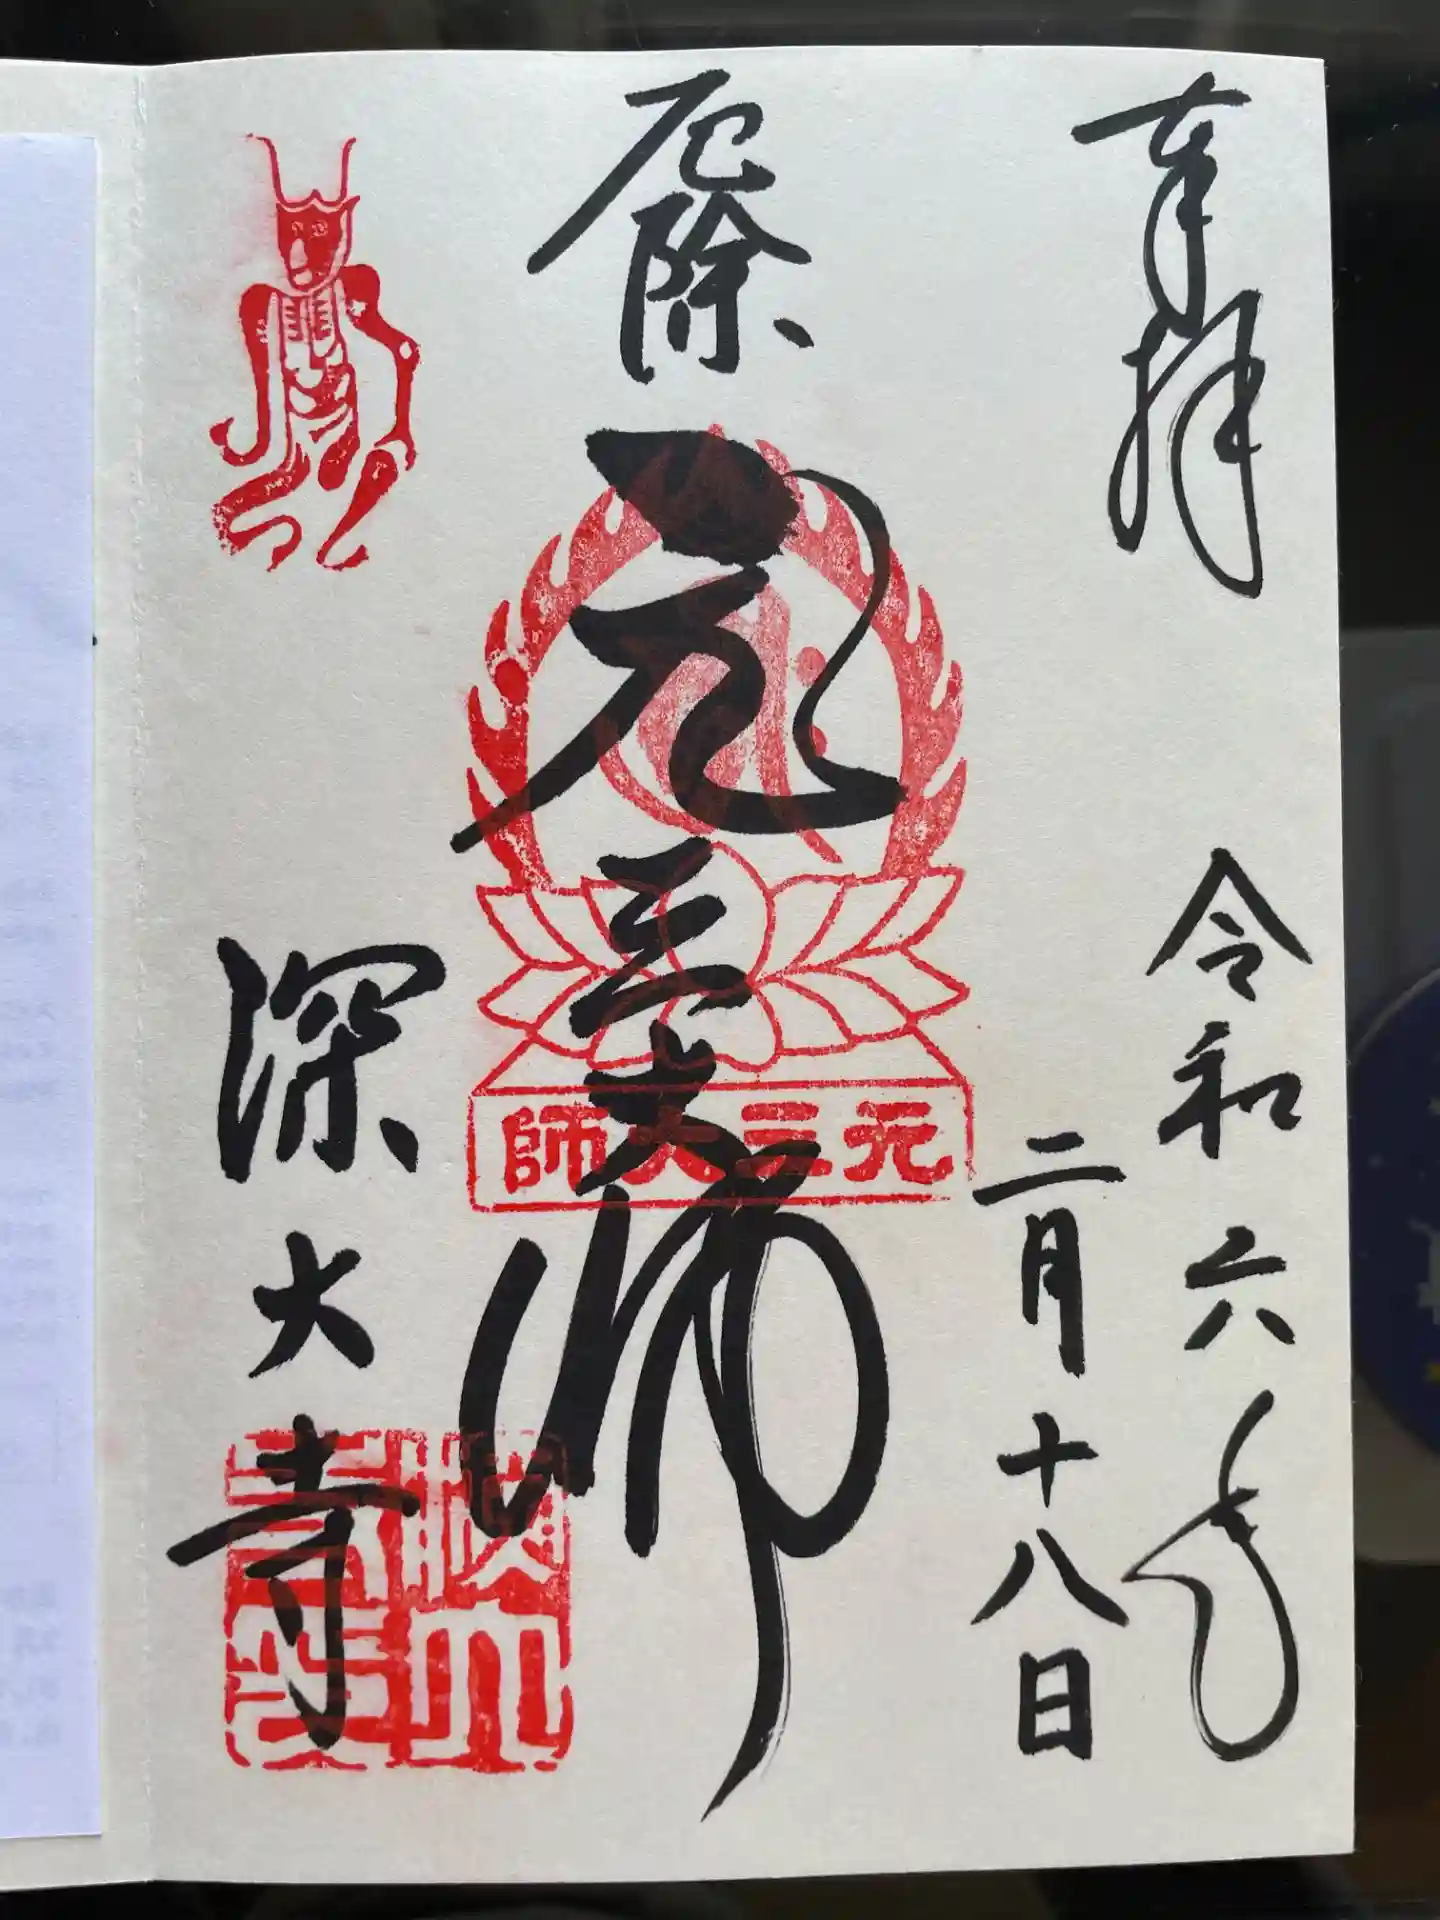 奉拝
令和六年
二月十八日
厄除
元三大師
元三大師
深大寺